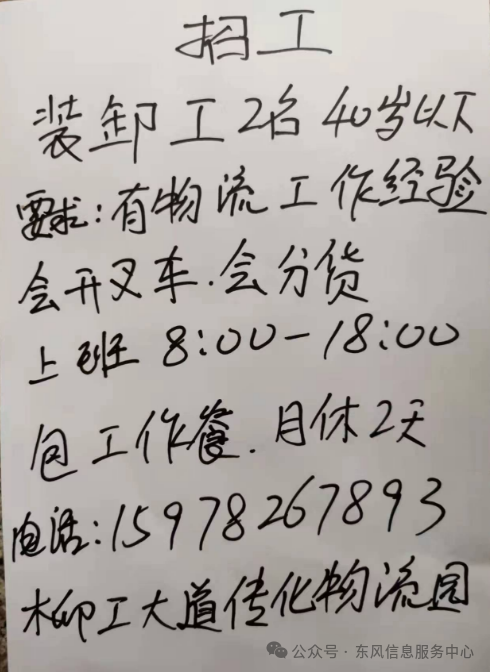 招工
装卸工2名 40岁以下
要求:有物流工作经验
会开叉车.会分货
上班 8:00-18:00
包工作餐.月休2天
电话:15978267893
柳工大道传化物流园
公众号·东风信息服务中心